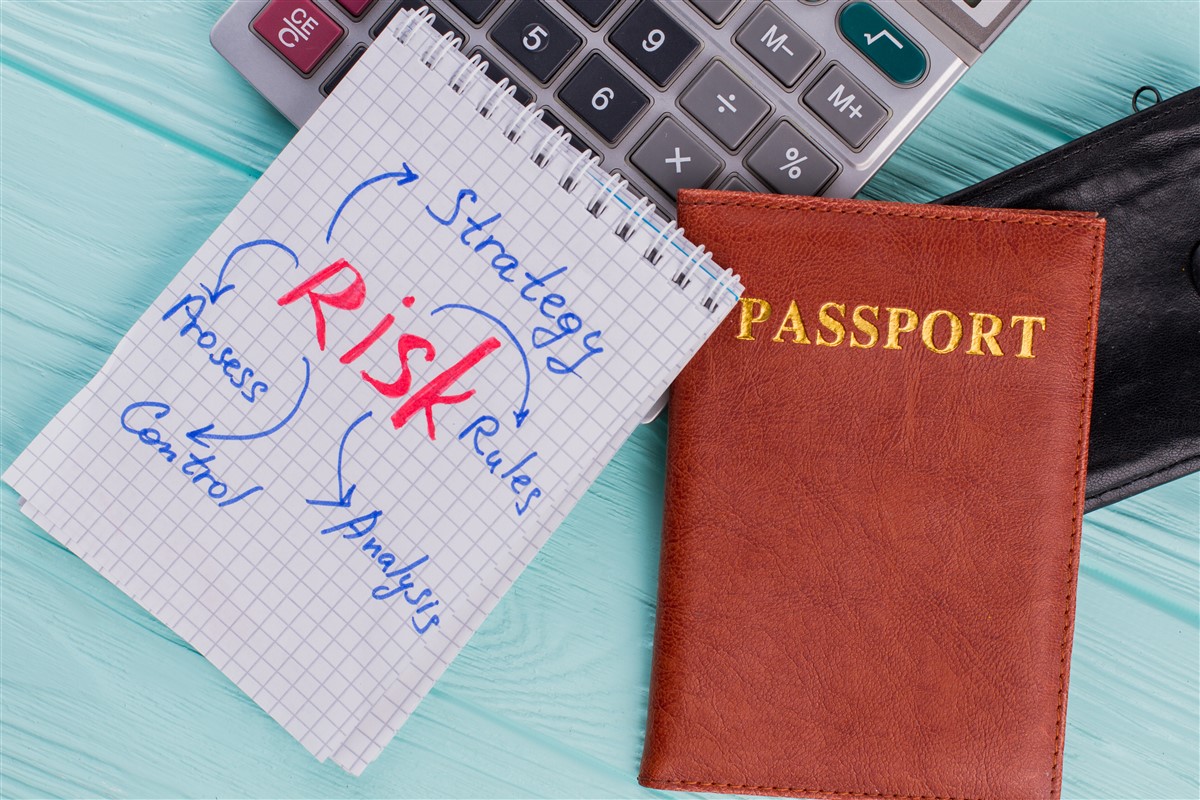 CE/C
5
9
M−
√
6
÷
M+
×
%
Strategy
Risk
Prosess
Rules
Control
Analysis
PASSPORT